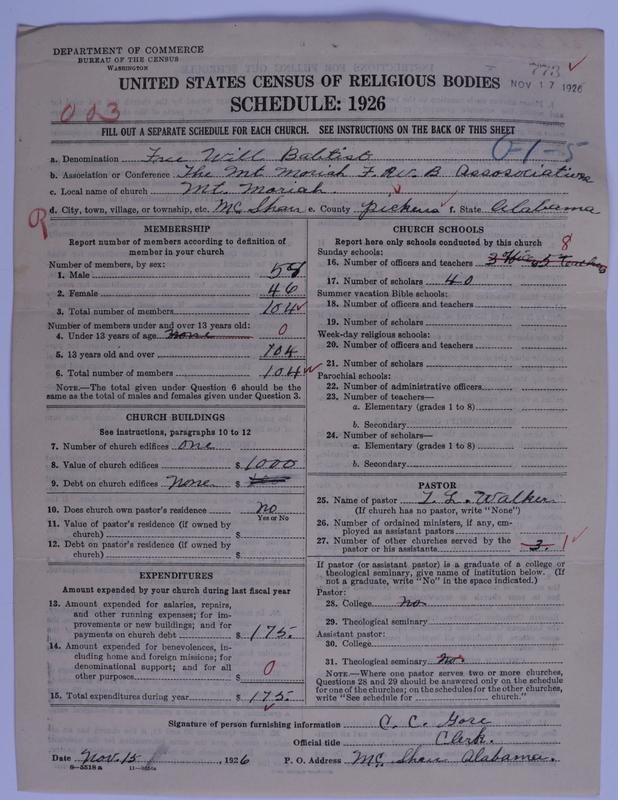 DEPARTMENT OF COMMERCE
BUREAU OF THE CENSUS
WASHINGTON
773
NOV 17 1926
UNITED STATES CENSUS OF RELIGIOUS BODIES
SCHEDULE: 1926
003
FILL OUT A SEPARATE SCHEDULE FOR EACH CHURCH. SEE INSTRUCTIONS ON THE BACK OF THIS SHEET
0-1-5
a. Denomination Free Will Babtist
b. Association or Conference The Mt Moriah F. W. B Assosociation
c. Local name of church Mt. Moriah
d. City, town, village, or township, etc. Mc Shan e. County Pickens f. State Alabama
MEMBERSHIP
Report number of members according to definition of
member in your church
Number of members by sex:
1. Male 58
2. Female 46
3. Total number of members 104
Number of members under and over 13 years old:
4. Under 13 years of age none 0
5. 13 years old and over 104
6. Total number of members 104
NOTE.—The total given under Question 6 should be
same as the total of males and females given under Question 3.
CHURCH BUILDINGS
See instructions, paragraphs 10 to 12
7. Number of church edifices one
8. Value of church edifices $ 1000
9. Debt on church edifices None $
10. Does church own pastor's residence no
Yes or No
11. Value of pastor's residence (if owned by
church) $
12. Debt on pastor's residence (if owned by
church) $
EXPENDITURES
Amount expended by your church during last fiscal year
13. Amount expended for salaries, repairs,
and other running expenses; for im-
provements or new buildings; and for
payments on church debt $ 175.
14. Amount expended for benevolences, in-
cluding home and foreign missions; for
denominational support; and for all
other purposes $ 0
15. Total expenditures during year $ 175.
CHURCH SCHOOLS
Report here only schools conducted by this church
8
Sunday schools:
16. Number of officers and teachers 3 5 Teachers
17. Number of scholars 40
Summer vacation Bible schools:
18. Number of officers and teachers
19. Number of scholars
Week-day religious schools:
20. Number of officers and teachers
21. Number of scholars
Parochial schools:
22. Number of administrative officers
23. Number of teachers—
a. Elementary (grades 1 to 8)
b. Secondary
24. Number of scholars—
a. Elementary (grades 1 to 8)
b. Secondary
PASTOR
25. Name of pastor T. L. Walker
(If church has no pastor, write "None")
26. Number of ordained ministers, if any, em-
ployed as assistant pastors
27. Number of other churches served by the
pastor or his assistants 3. 1
If pastor (or assistant pastor) is a graduate of a college or
theological seminary, give name of institution below. (If
not a graduate, write "No" in the space indicated.)
Pastor:
28. College no
29. Theological seminary
Assistant pastor:
30. College
31. Theological seminary no.
NOTE.—Where one pastor serves two or more churches,
Questions 28 and 29 should be answered only on the schedule
for one of the churches; on the schedules for the other churches,
write "See schedule for church."
Signature of person furnishing information C. C. Gore
Official title Clerk.
Date Nov. 15, 1926 P. O. Address Mc Shan Alabama.
8—5518a